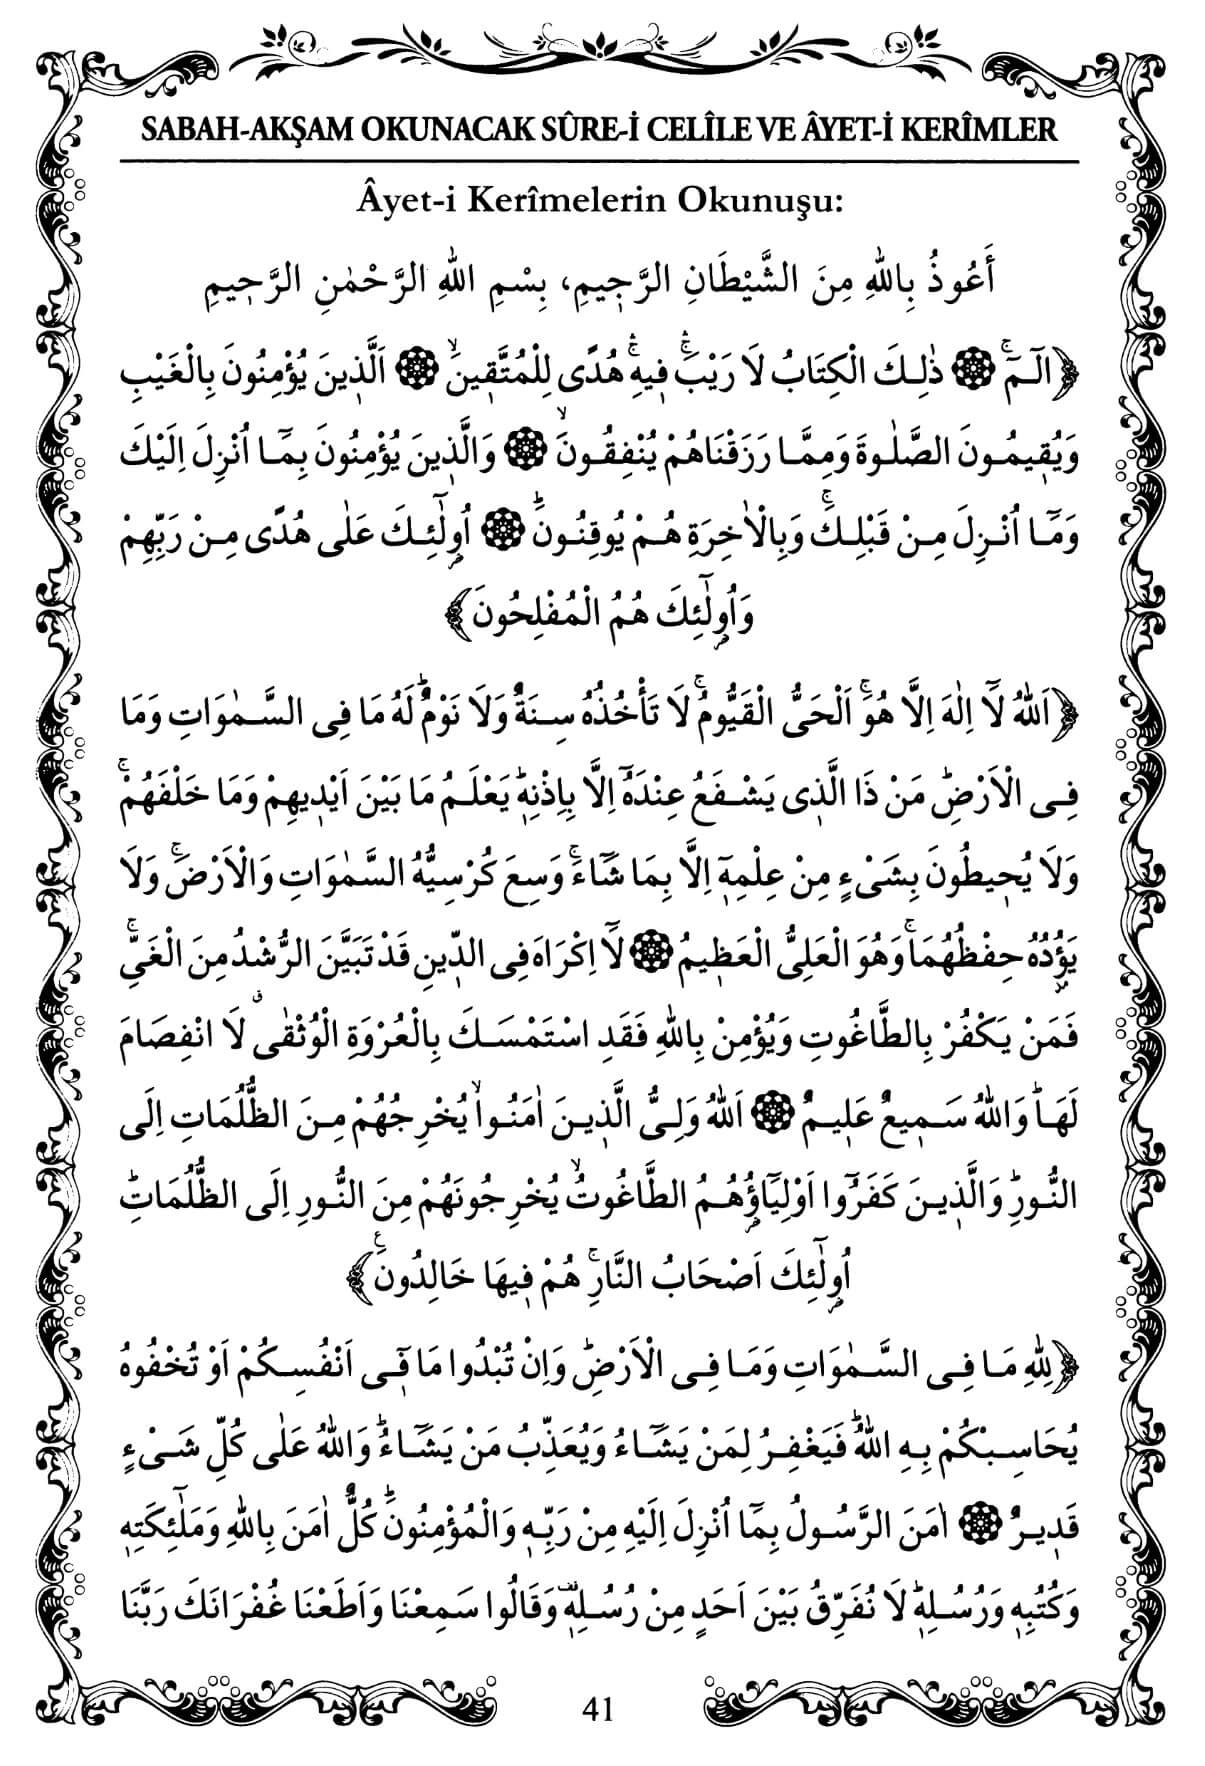 SABAH-AKŞAM OKUNACAK SÛRE-İ CELÎLE VE ÂYET-İ KERÎMLER
Âyet-i Kerîmelerin Okunuşu:
أَعُوذُ بِاللّٰهِ مِنَ الشَّيْطَانِ الرَّجٖيمِ، بِسْمِ اللّٰهِ الرَّحْمٰنِ الرَّحٖيمِ
﴿الٓمٓۚ ۞ ذٰلِكَ الْكِتَابُ لَا رَيْبَۚ فٖيهِۚ هُدًى لِلْمُتَّقٖينَۙ ۞ اَلَّذٖينَ يُؤْمِنُونَ بِالْغَيْبِ
وَيُقٖيمُونَ الصَّلٰوةَ وَمِمَّا رَزَقْنَاهُمْ يُنْفِقُونَۙ ۞ وَالَّذٖينَ يُؤْمِنُونَ بِمَٓا اُنْزِلَ اِلَيْكَ
وَمَٓا اُنْزِلَ مِنْ قَبْلِكَۚ وَبِالْاٰخِرَةِ هُمْ يُوقِنُونَؕ ۞ اُو۬لٰٓئِكَ عَلٰى هُدًى مِنْ رَبِّهِمْ
وَاُو۬لٰٓئِكَ هُمُ الْمُفْلِحُونَ﴾
﴿اَللّٰهُ لَٓا اِلٰهَ اِلَّا هُوَۚ اَلْحَيُّ الْقَيُّومُۚ لَا تَأْخُذُهُ سِنَةٌ وَلَا نَوْمٌؕ لَهُ مَا فِى السَّمٰوَاتِ وَمَا
فِى الْاَرْضِؕ مَنْ ذَا الَّذٖى يَشْفَعُ عِنْدَهُٓ اِلَّا بِاِذْنِهٖؕ يَعْلَمُ مَا بَيْنَ اَيْدٖيهِمْ وَمَا خَلْفَهُمْۚ
وَلَا يُحٖيطُونَ بِشَىْءٍ مِنْ عِلْمِهٖٓ اِلَّا بِمَا شَٓاءَۚ وَسِعَ كُرْسِيُّهُ السَّمٰوَاتِ وَالْاَرْضَۚ وَلَا
يَؤُ۫دُهُ حِفْظُهُمَاۚ وَهُوَ الْعَلِىُّ الْعَظٖيمُ ۞ لَٓا اِكْرَاهَ فِى الدّٖينِ قَدْ تَبَيَّنَ الرُّشْدُ مِنَ الْغَىِّۚ
فَمَنْ يَكْفُرْ بِالطَّاغُوتِ وَيُؤْمِنْ بِاللّٰهِ فَقَدِ اسْتَمْسَكَ بِالْعُرْوَةِ الْوُثْقٰىۗ لَا انْفِصَامَ
لَهَاؕ وَاللّٰهُ سَمٖيعٌ عَلٖيمٌ ۞ اَللّٰهُ وَلِىُّ الَّذٖينَ اٰمَنُواۙ يُخْرِجُهُمْ مِنَ الظُّلُمَاتِ اِلَى
النُّورِؕ وَالَّذٖينَ كَفَرُٓوا اَوْلِيَٓاؤُ۬هُمُ الطَّاغُوتُۙ يُخْرِجُونَهُمْ مِنَ النُّورِ اِلَى الظُّلُمَاتِؕ
اُو۬لٰٓئِكَ اَصْحَابُ النَّارِۚ هُمْ فٖيهَا خَالِدُونَ﴾
﴿لِلّٰهِ مَا فِى السَّمٰوَاتِ وَمَا فِى الْاَرْضِؕ وَاِنْ تُبْدُوا مَا فٖٓى اَنْفُسِكُمْ اَوْ تُخْفُوهُ
يُحَاسِبْكُمْ بِهِ اللّٰهُؕ فَيَغْفِرُ لِمَنْ يَشَٓاءُ وَيُعَذِّبُ مَنْ يَشَٓاءُؕ وَاللّٰهُ عَلٰى كُلِّ شَىْءٍ
قَدٖيرٌ ۞ اٰمَنَ الرَّسُولُ بِمَٓا اُنْزِلَ اِلَيْهِ مِنْ رَبِّهٖ وَالْمُؤْمِنُونَؕ كُلٌّ اٰمَنَ بِاللّٰهِ وَمَلٰٓئِكَتِهٖ
وَكُتُبِهٖ وَرُسُلِهٖؕ لَا نُفَرِّقُ بَيْنَ اَحَدٍ مِنْ رُسُلِهٖۛ وَقَالُوا سَمِعْنَا وَاَطَعْنَا غُفْرَانَكَ رَبَّنَا
41